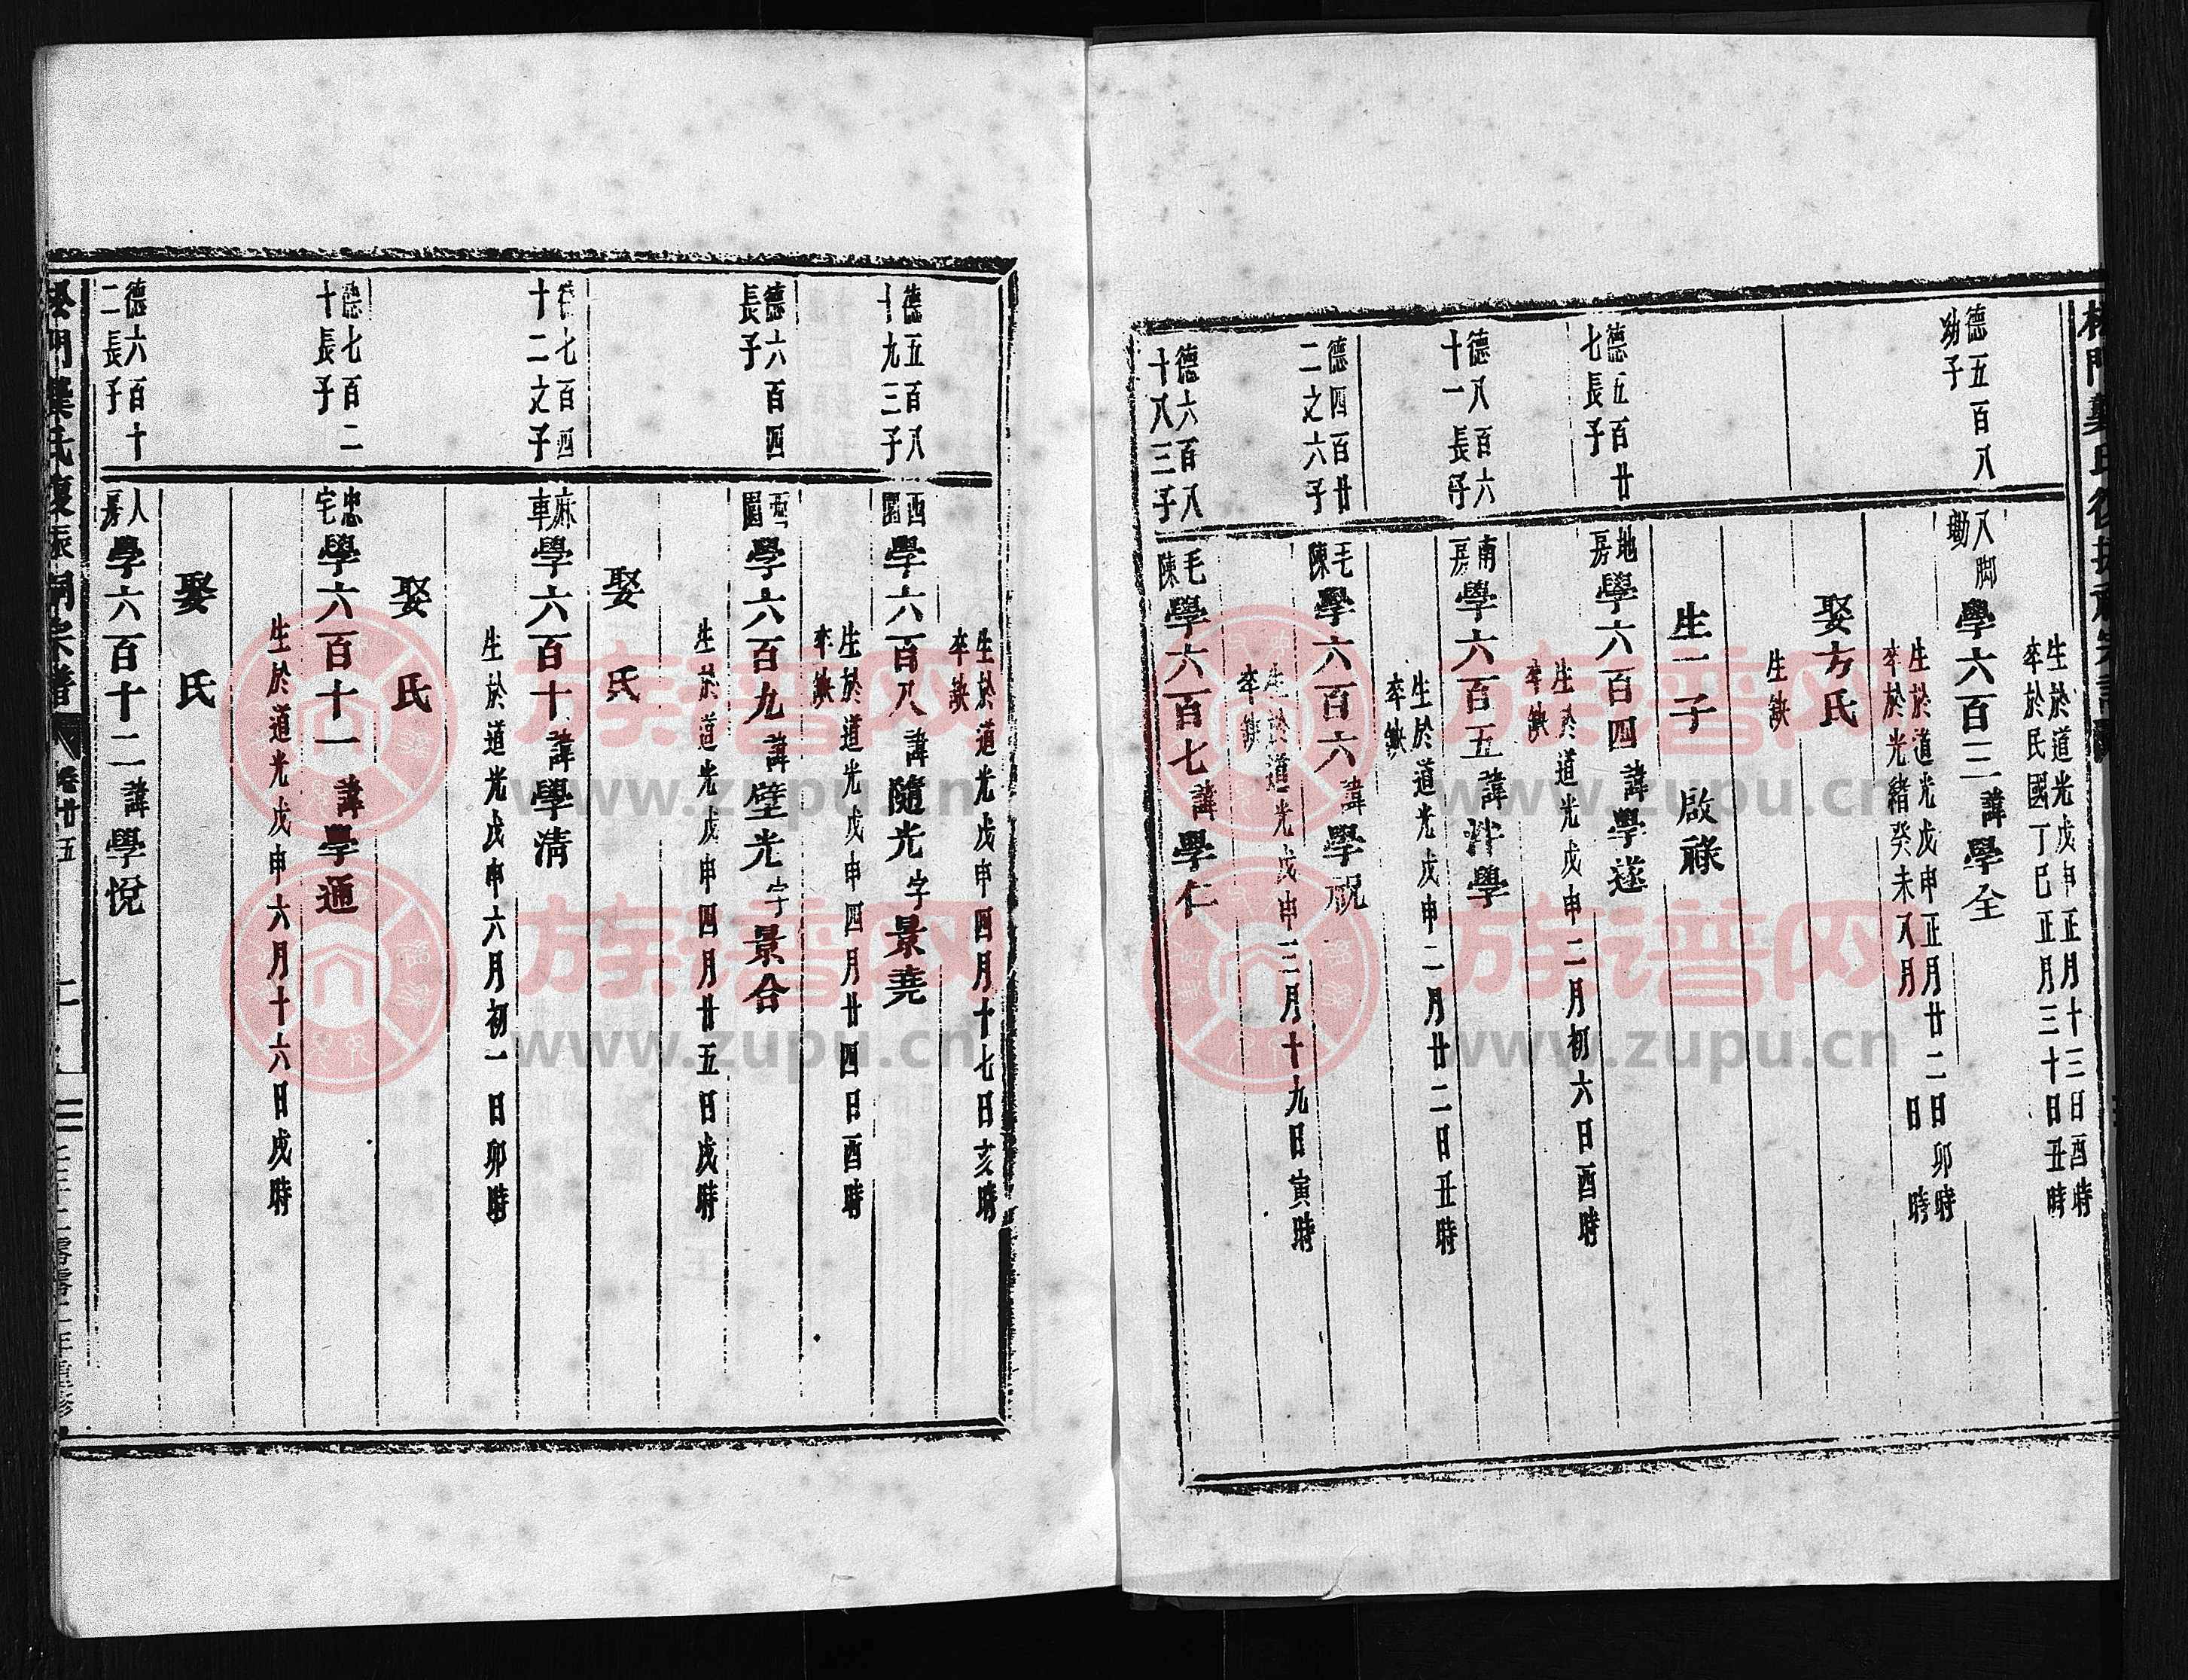 生於道光戊申正月十三日酉時
卒於民國丁巳正月三十日丑時
德五百八
幼子
八脚
勘
學六百三諱學全
生於道光戊申正月廿二日卯時
卒於光緒癸未八月 日 時
娶方氏
生缺
生一子 啟祿
德五百廿
七長子
地房
學六百四諱學遂
生於道光戊申二月初六日酉時
卒缺
德八百六
十一長子
南房
學六百五諱泮學
生於道光戊申二月廿二日丑時
卒缺
德四百廿
二之六子
毛陳
學六百六諱學祝
生於道光戊申三月十九日寅時
卒缺
德六百八
十八三子
毛陳
學六百七諱學仁
生於道光戊申四月十七日亥時
卒缺
德五百八
十九三子
西園
學六百八諱隨光字景堯
生於道光戊申四月廿四日酉時
卒缺
德六百四
長子
西園
學六百九諱壁光字景合
生於道光戊申四月廿五日戌時
娶 氏
德七百四
十二之子
麻車
學六百十諱學清
生於道光戊申六月初一日卯時
娶 氏
德七百二
十長子
忠宅
學六百十一諱學通
生於道光戊申六月十六日戌時
娶 氏
德六百十
二長子
人房
學六百十二諱學悅
卷廿五
族谱网
www.zupu.cn
族谱网
www.zupu.cn
族谱网
www.zupu.cn
族谱网
www.zupu.cn